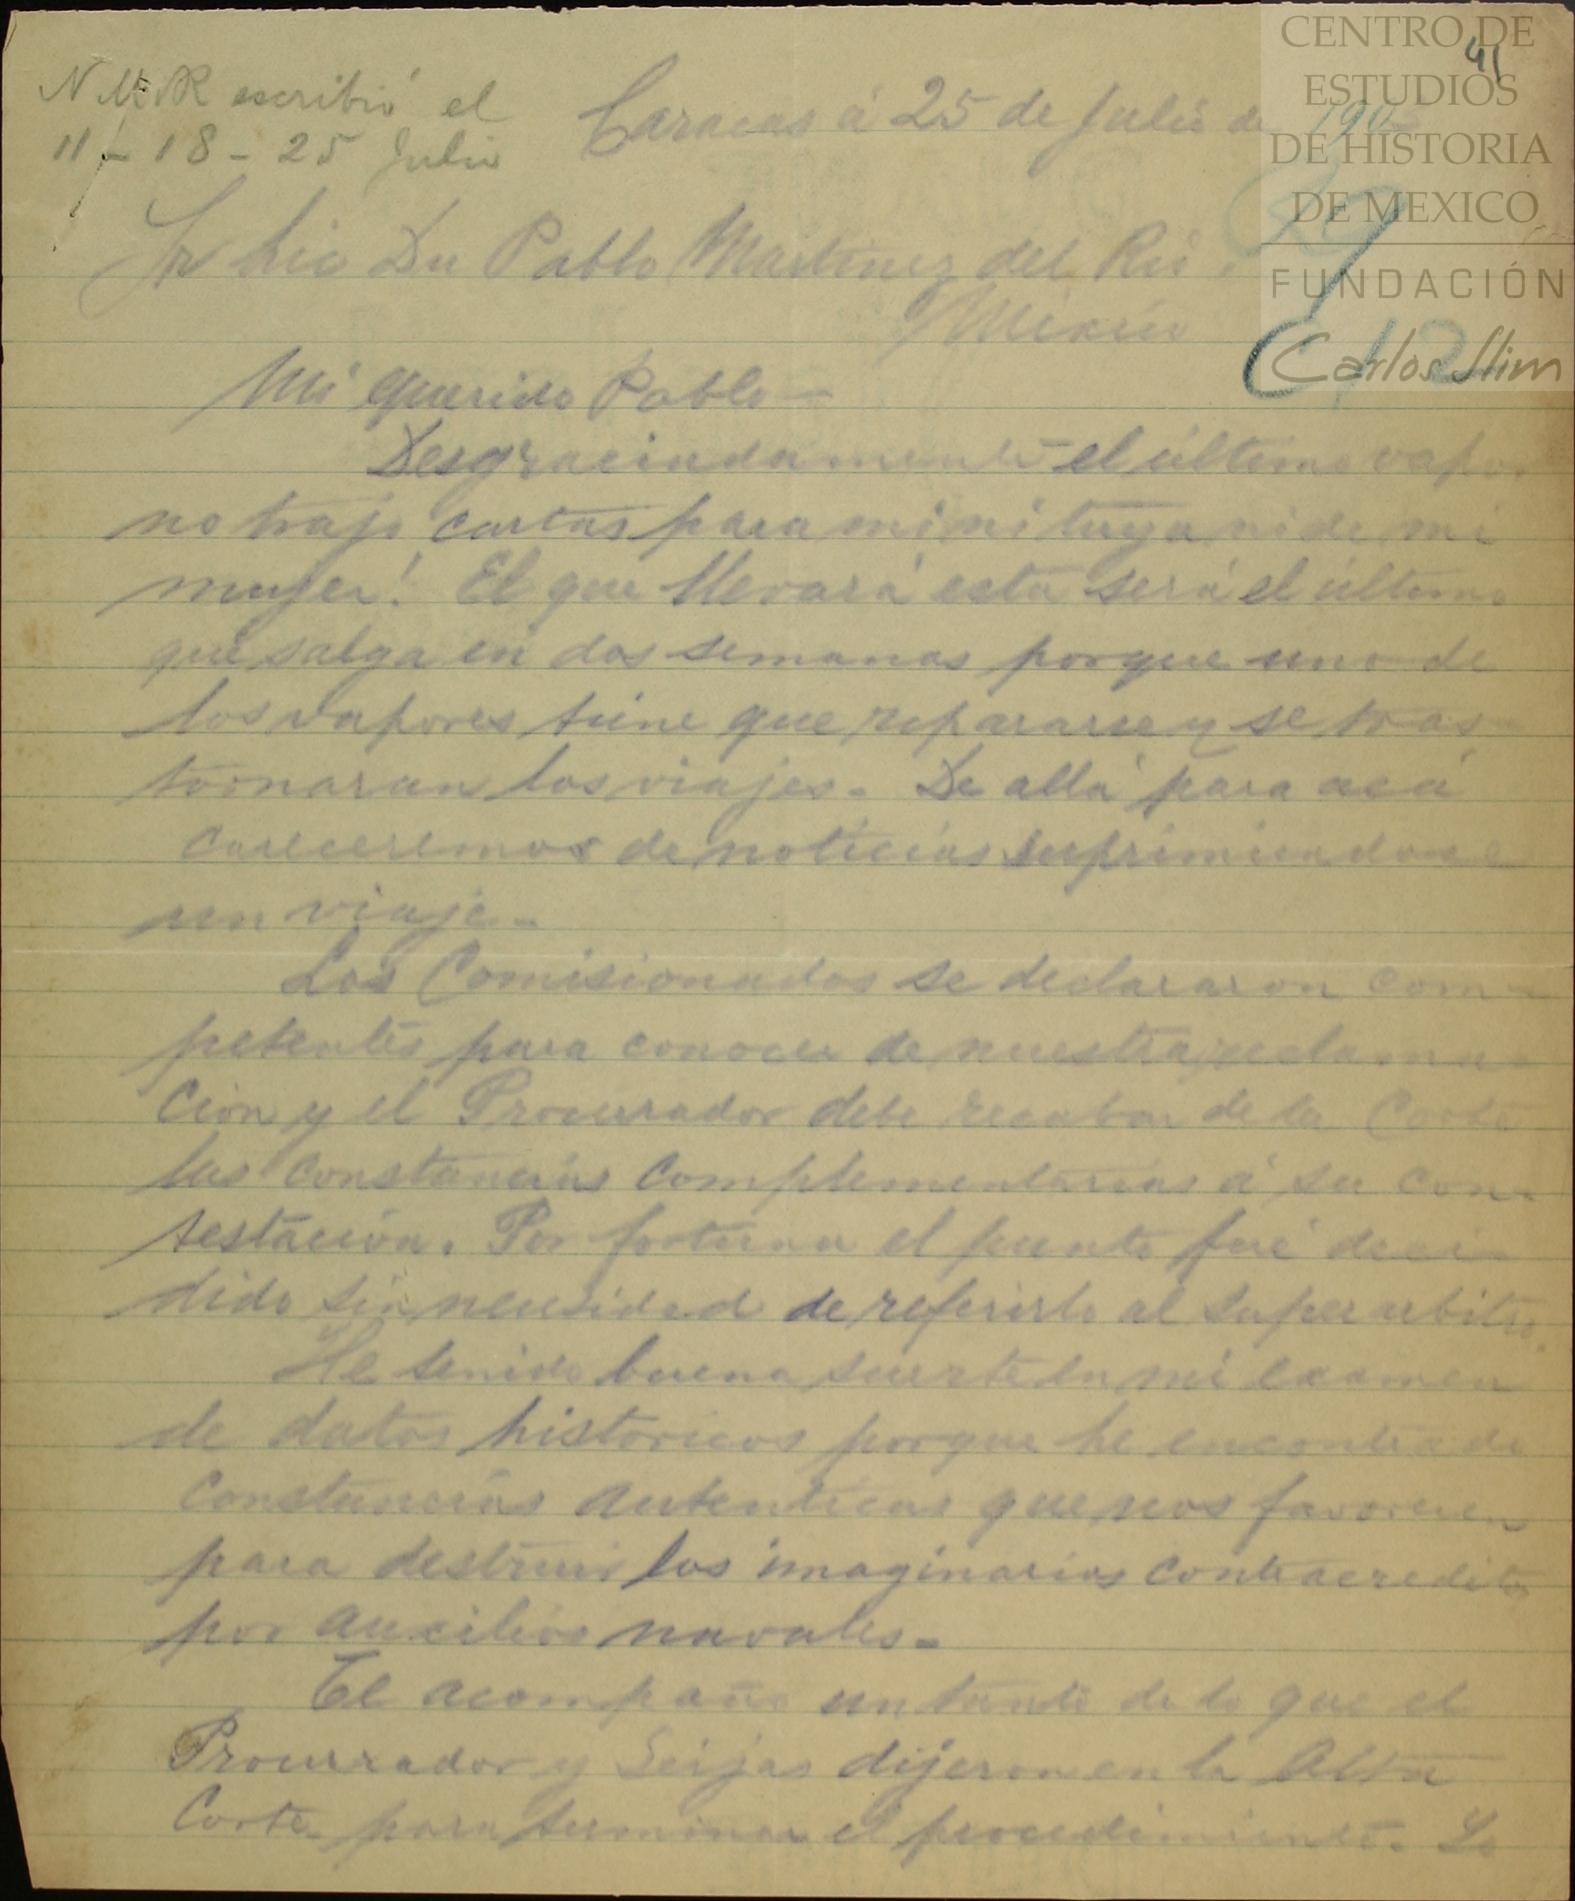 CENTRO DE
ESTUDIOS
DE HISTORIA
DE MEXICO
FUNDACIÓN
Carlos Slim
41
escribió el
11 - 18 - 25 Julio
Caracas á 25 de Julio de 190
Sr Lic Dn Pablo Martinez del Rio.
México
Mi querido Pablo—
Desgraciadamente el último vapor
no trajo cartas para mi ni tuya ni de mi
mujer! El que llevará esta será el último
que salga en dos semanas porque uno de
los vapores tiene que repararse y se tras
tornaran los viajes. De allá para acá
careceremos de noticias suprimiendose
un viaje.
Los Comisionados se declararon com-
petentes para conocer de nuestra reclama-
cion y el Procurador debe recabar de la Corte
las constancias complementarias á su con-
testación. Por fortuna el punto fué deci-
dido sin necesidad de referirlo al Superarbitro.
He tenido buena suerte en mi examen
de datos historicos porque he encontrado
constancias autenticas que nos favorecen
para destruir los imaginarios contracreditos
por auxilios navales.
Te acompaño un tanto de lo que el
Procurador y Seijas dijeron en la Alta
Corte para terminar el procedimiento. Lo